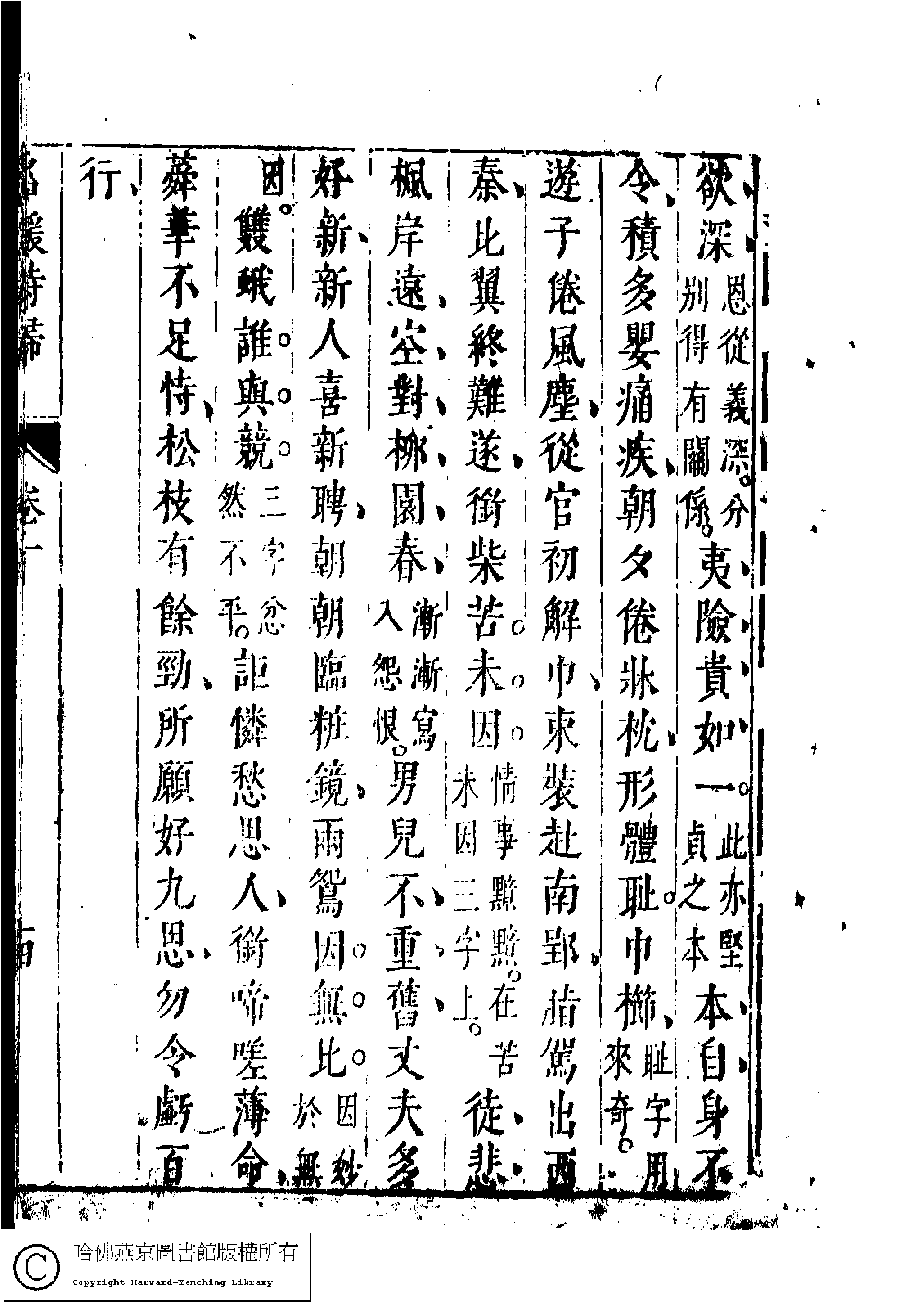 欲深恩從義深。分別得有關係。夷險貴如一。此亦堅貞之本本自身不
令、積多嬰痛疾、朝夕倦牀枕、形體恥。巾櫛、恥字用來奇。
遊子倦風塵、從官初解巾、束裝赴南郢、脂駕出西
秦、比翼終難遂、銜柴苦。未。因。情事黯黯。在苦未因三字上。徒悲
楓岸遠、空對栁園春、漸漸寫入怨恨。男兒不重舊、丈夫多
好新、新人喜新聘、朝朝臨粧鏡、兩鴛因。無。比。因妙於無
因。雙蛾誰。與。競。三字忿然不平。詎憐愁思人、銜啼嗟薄命、
蕣華不足恃、松枝有餘勁、所願好九思、勿令虧百
行、
名媛詩歸 卷十
哈佛燕京圖書館版權所有
Copyright Harvard-Yenching Library